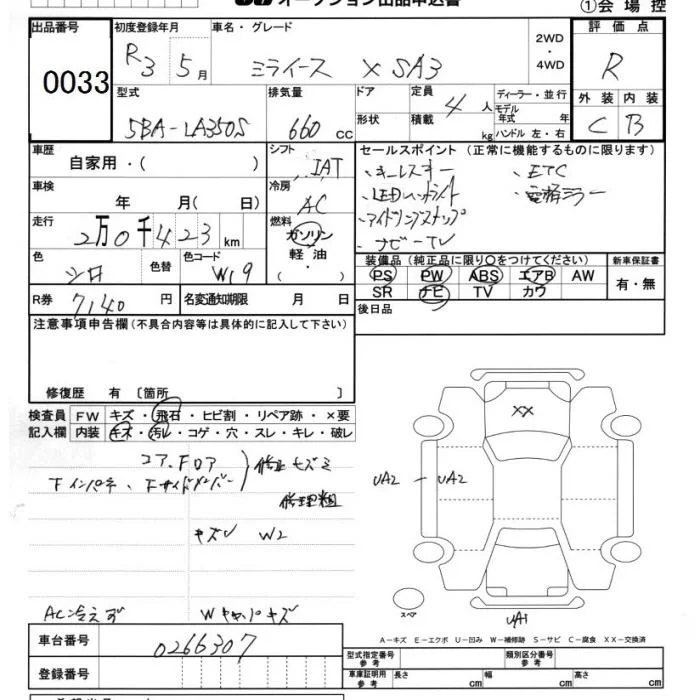 オークション出品申込書
①会場控
出品番号 初度登録年月 車名・グレード 評価点
0033 R3 5月 ミライース X SA3 2WD・4WD R
型式 排気量 ドア 定員 ディーラー・並行 外装 内装
5BA-LA350S 660cc 形状 積載 4人 kg モデル年式 年 ハンドル 左・右 C B
車歴 シフト セールスポイント (正常に機能するものに限ります)
自家用・( ) IAT ・キーレスキー ・ETC
車検 冷房 ・LEDヘッドライト ・電格ミラー
年 月( 日) AC ・アイドリングストップ
走行 燃料 ・ナビーTV
2万0千423km ガソリン
軽油
・( )
色 色替 色コード 装備品(純正品に限り○をつけてください) 新車保証書
シロ W19 PS PW ABS エアB AW 有・無
SR ナビ TV カワ
R券 7140円 名変通知期限 月 日 後日品
注意事項申告欄(不具合内容等は具体的に記入して下さい)
修復歴 有 〔箇所 〕
検査員 FW キズ・飛石・ヒビ割・リペア跡・×要
記入欄 内装 キズ・汚レ・コゲ・穴・スレ・キレ・破レ
コア、Fロア
Fインパネ、Fサイドメンバー
修正キズミ
修理粗
キズレ W2
AC冷えず Wキャパキズ
XX
UA2 - UA2
スペア
UA1
A-キズ E-エクボ U-凹み W-補修跡 S-サビ C-腐食 XX-交換済
車台番号 0266307
登録番号
型式指定番号 参考 類別区分番号 参考
車庫証明用 参考 長さ cm 幅 cm 高さ cm